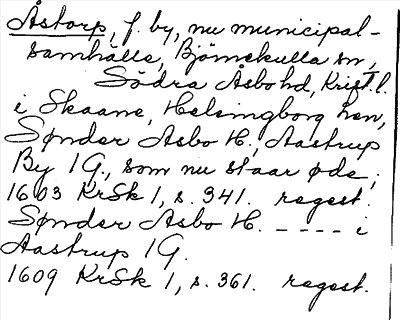 Åstorp, f. by, nu municipal-
samhälle, Björnekulla sn,
Södra Åsbo hd, Krist. l.
i Skaane, Helsingborg Len,
Sønder Asbo H., Aastrup
By 1 G., som nu staar øde;
1603 KrSk 1, s. 341. regest.
Sønder Asbo H. ---- i
Aastrup 1 G.
1609 KrSk 1, s. 361. regest.